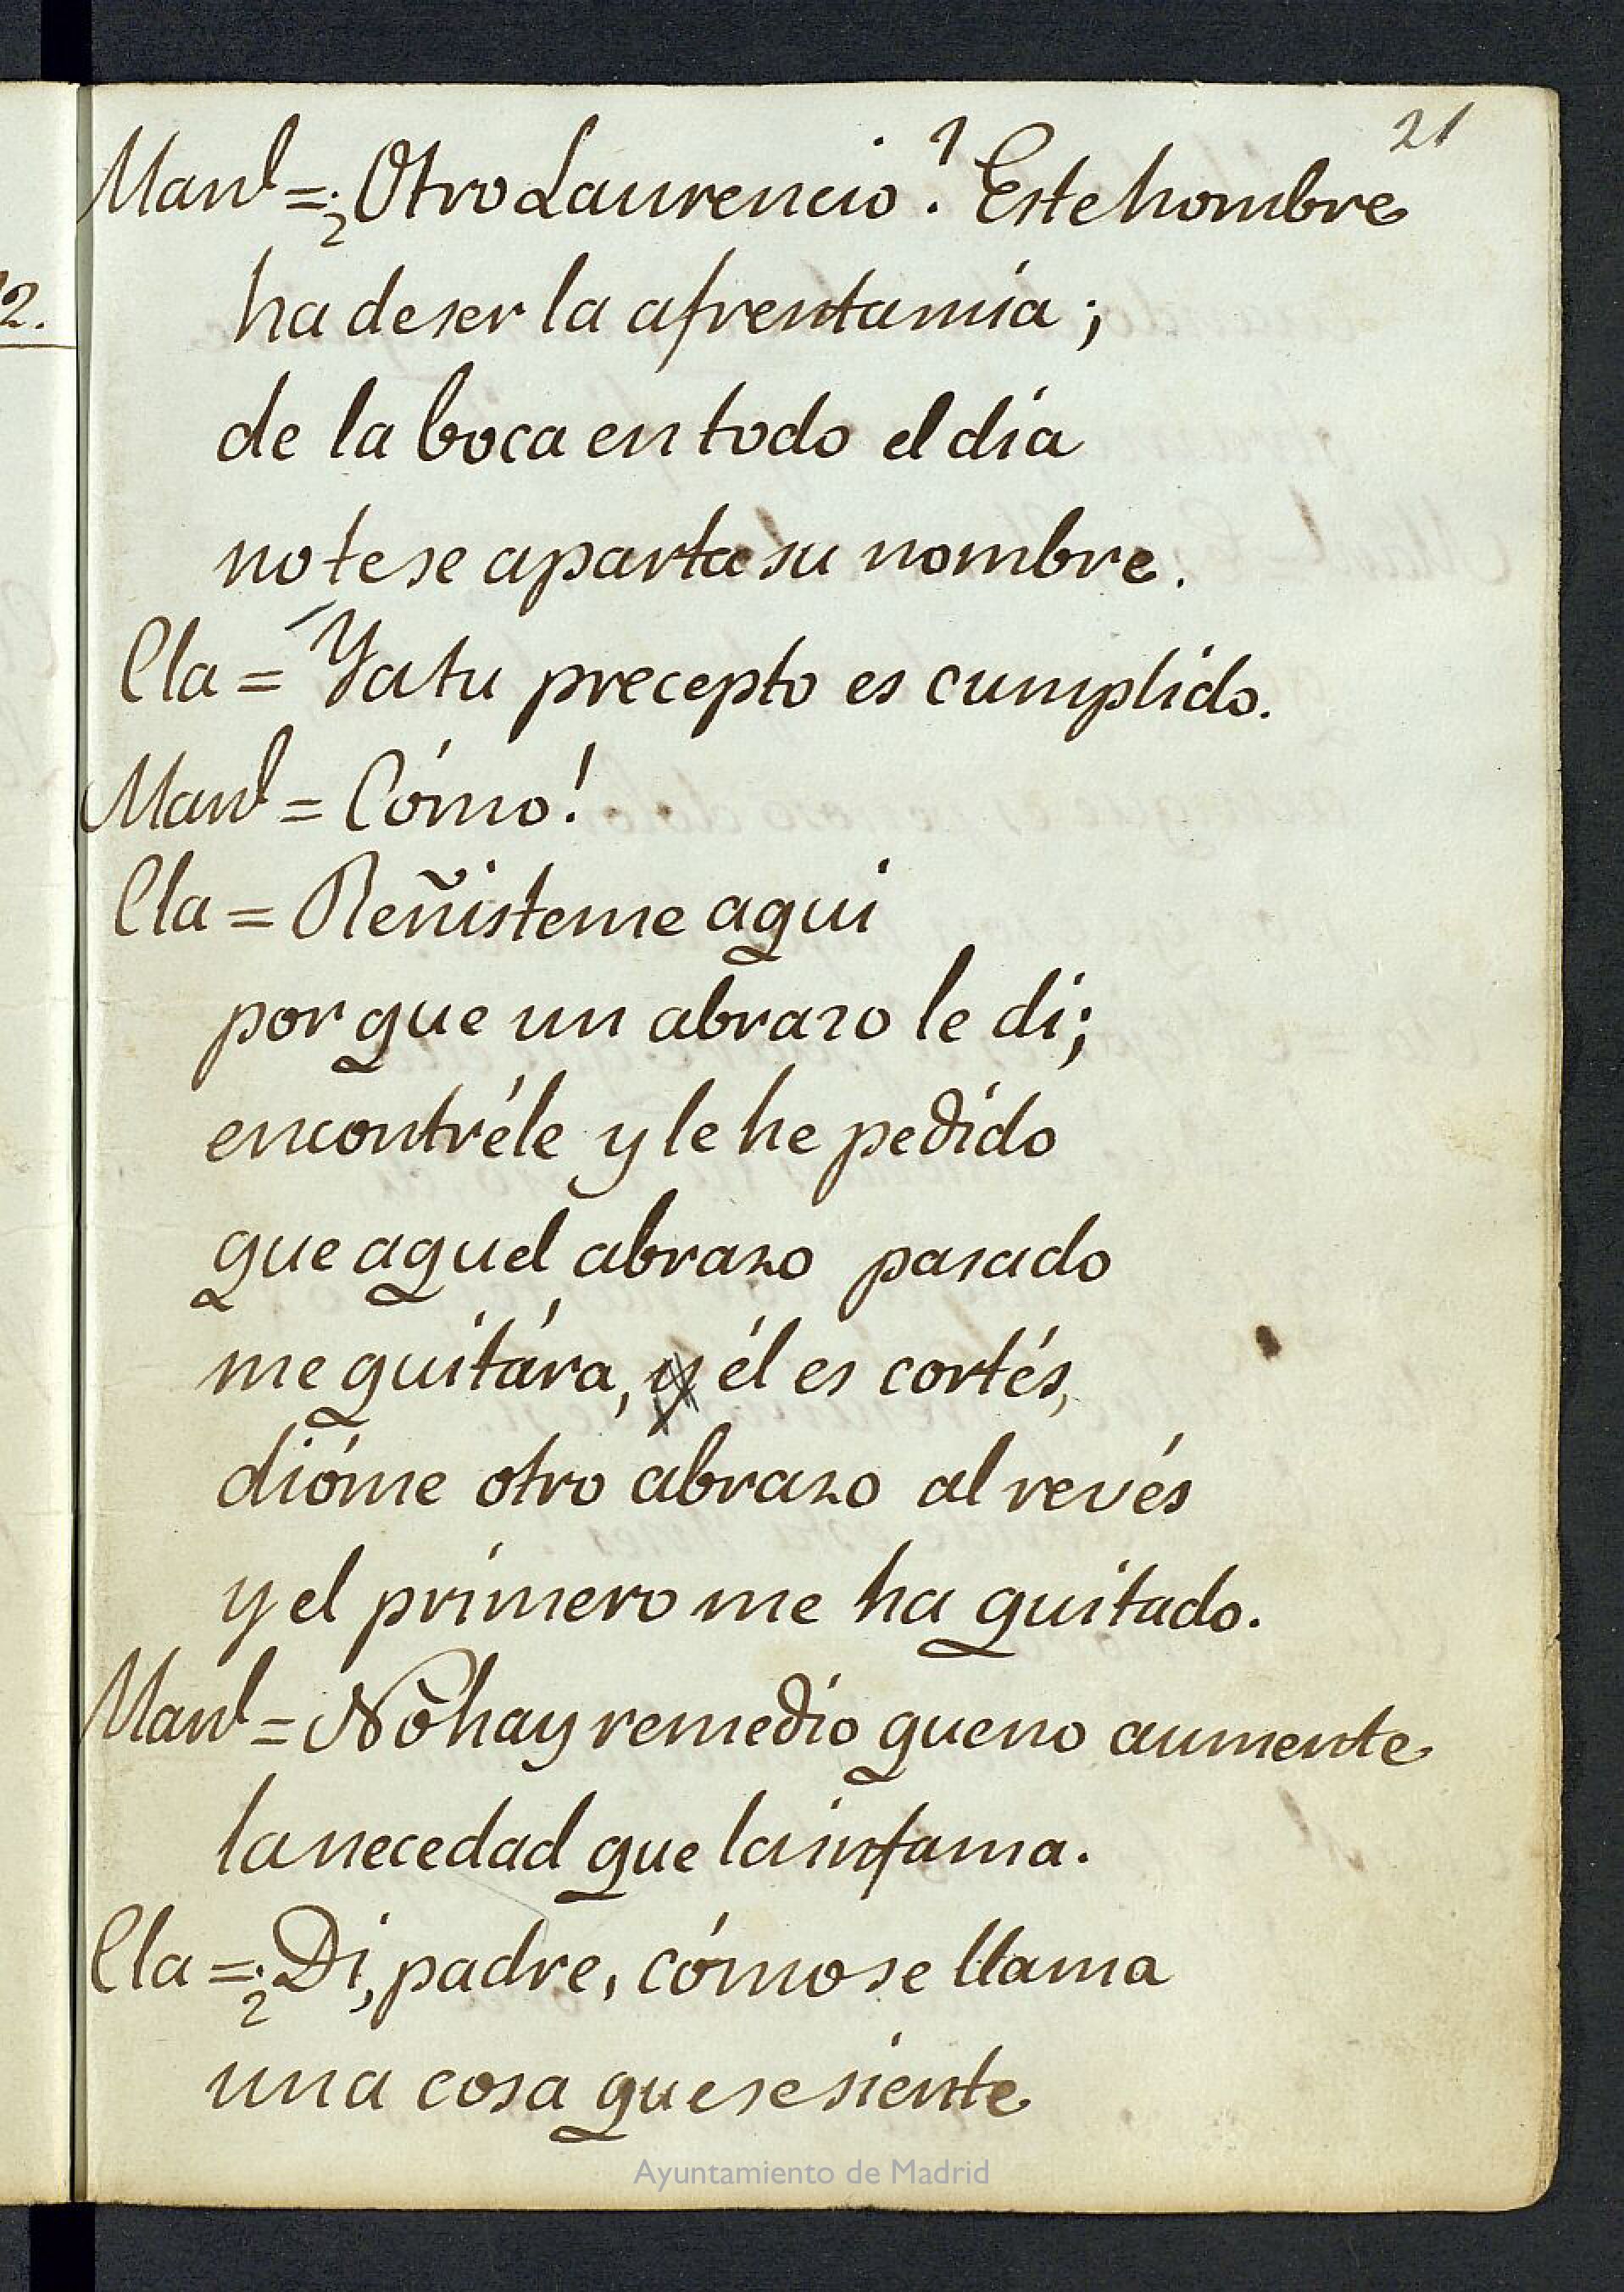 21
Manl = ¿Otro Laurencio? Este hombre
ha de ser la afrenta mía;
2.
de la boca en todo el día
no te se aparta su nombre.
Cla = Ya tu precepto es cumplido.
Manl = Cómo!
Cla = Reñísteme aqui
por que un abrazo le di;
encontréle y le he pedido
que aquel abrazo pasado
me quitára, y él es cortés,
dióme otro abrazo al revés
y el primero me ha quitado.
Manl = No hay remedio que no aumente
la necedad que la infama.
Cla = ¿Di, padre, cómo se llama
una cosa que se siente
Ayuntamiento de Madrid